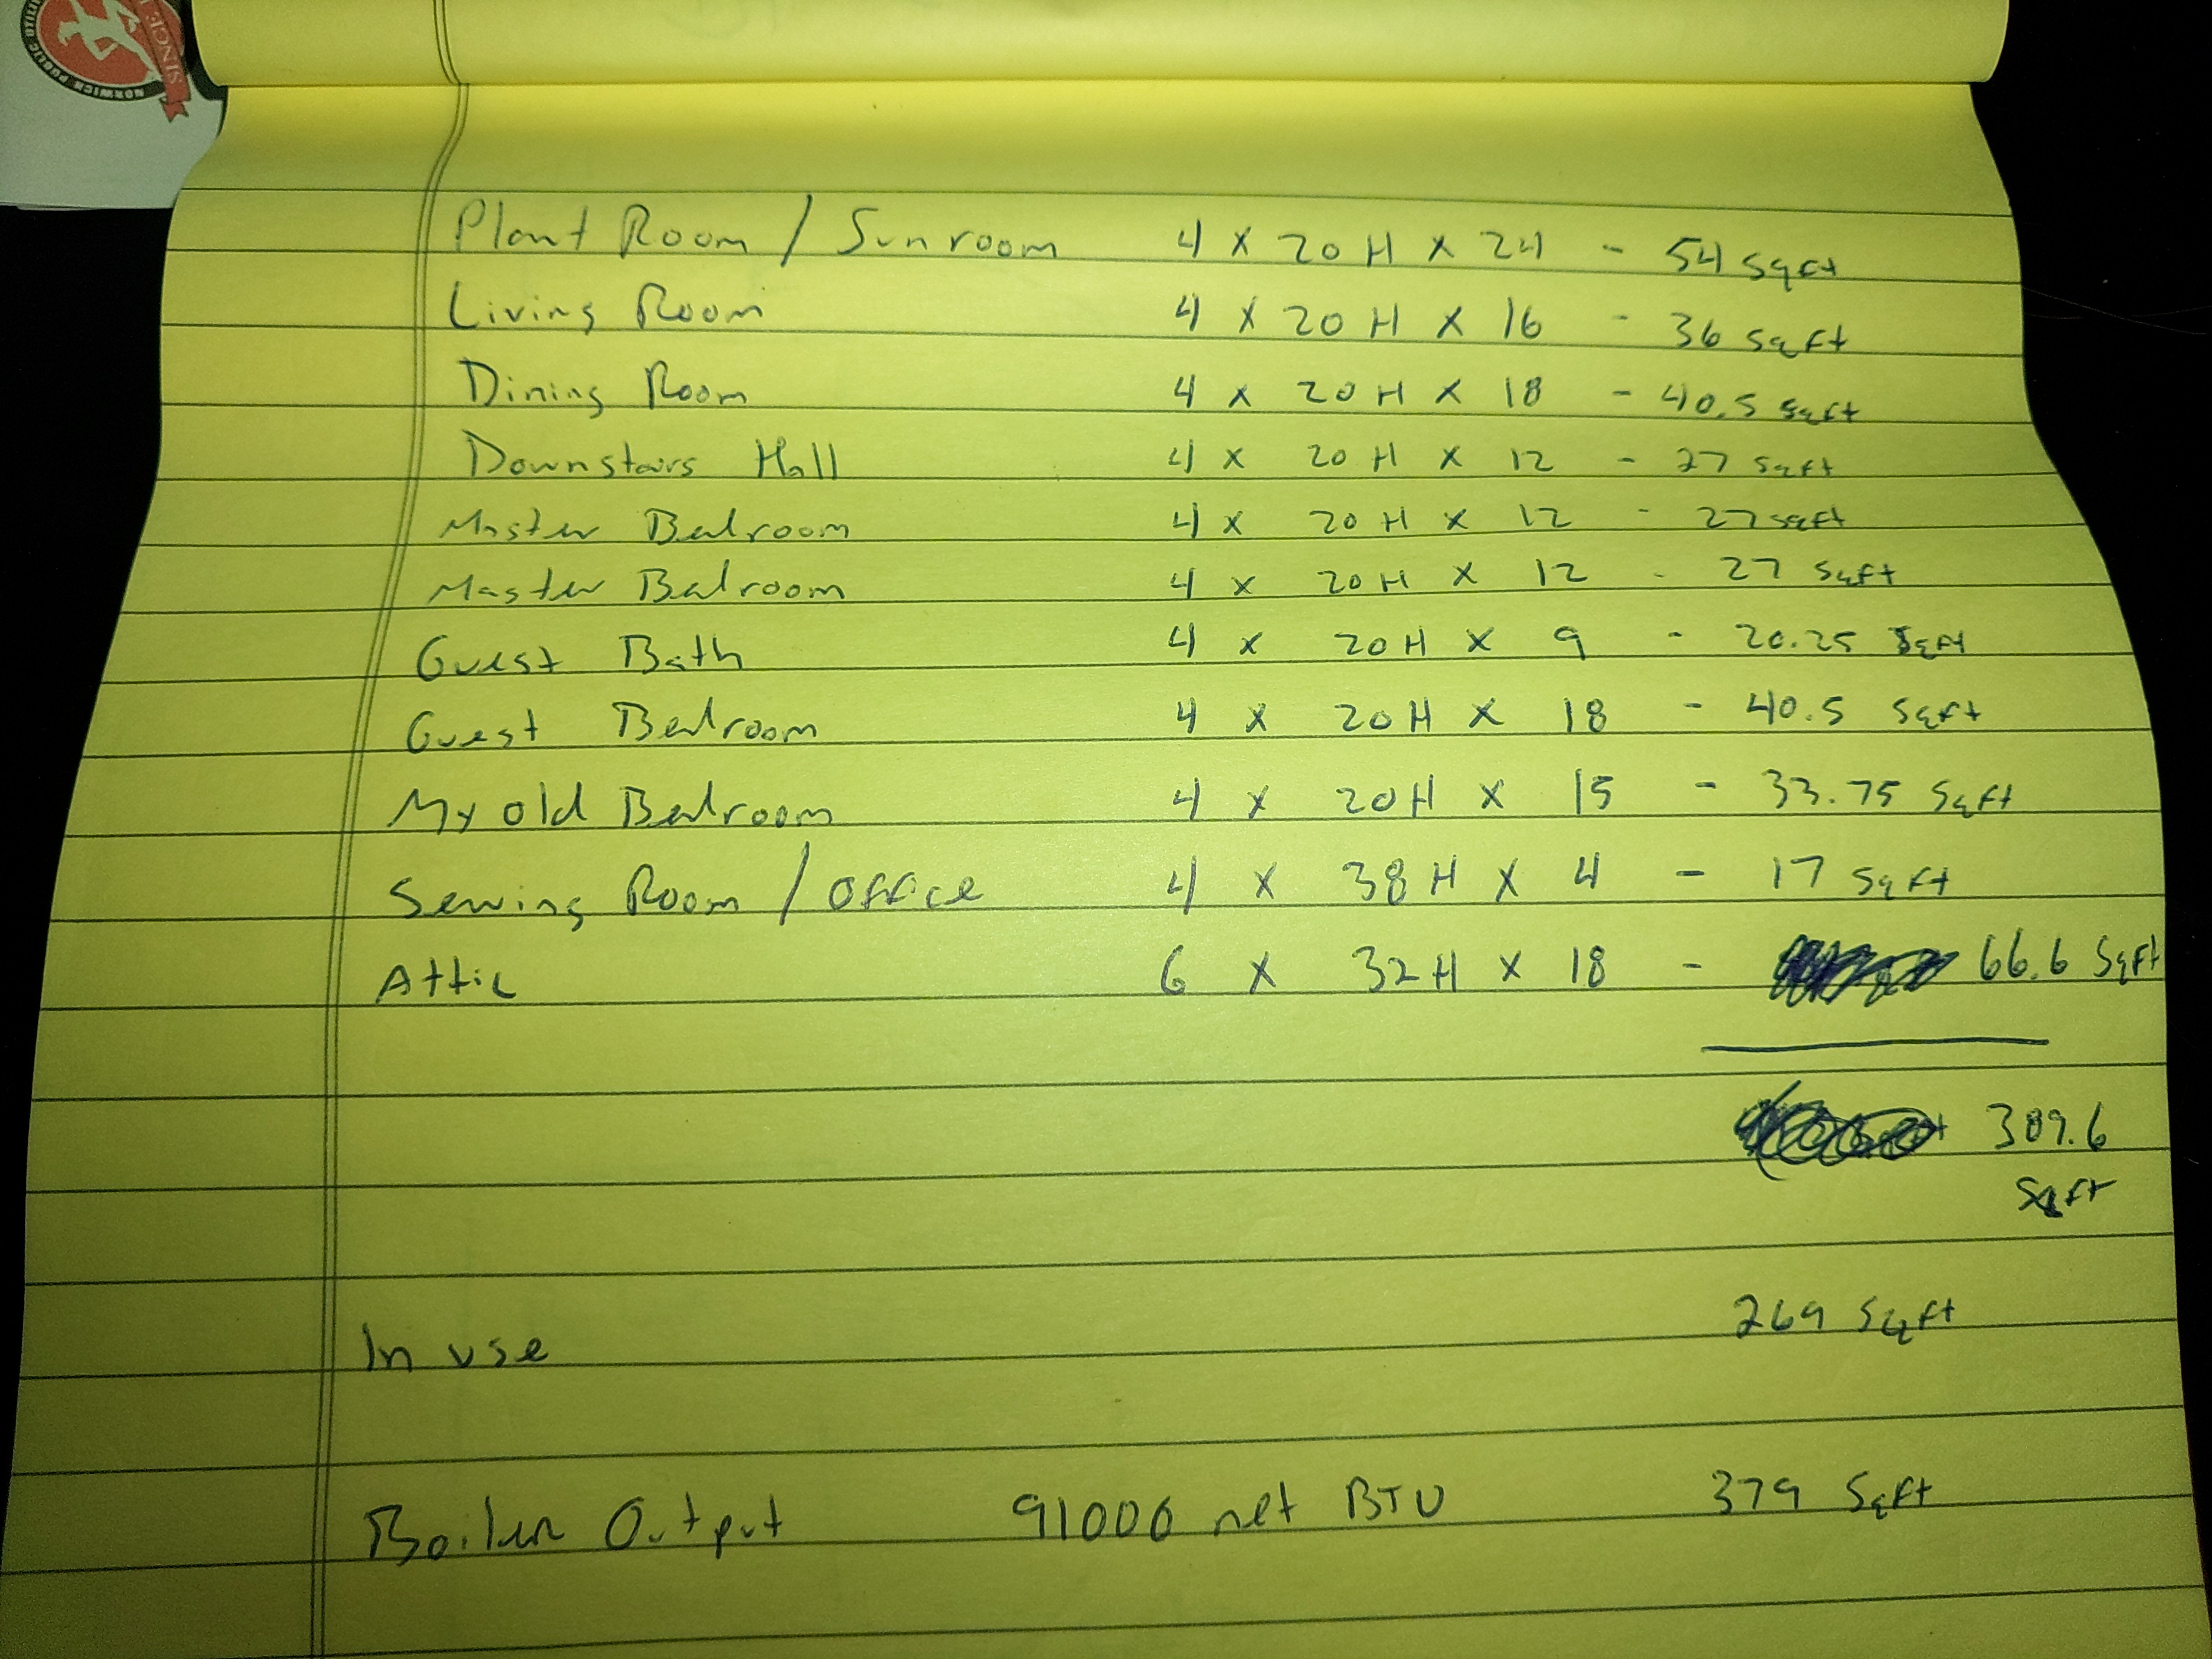 NORWICH PUBLIC
SINCE
Plant Room / Sunroom 4 x 20 H x 24 - 54 sqft
Living Room 4 x 20 H x 16 - 36 sqft
Dining Room 4 x 20 H x 18 - 40.5 sqft
Downstairs Hall 4 x 20 H x 12 - 27 sqft
Master Bedroom 4 x 20 H x 12 - 27 sqft
Master Bedroom 4 x 20 H x 12 - 27 sqft
Guest Bath 4 x 20 H x 9 - 20.25 sqft
Guest Bedroom 4 x 20 H x 18 - 40.5 sqft
My old Bedroom 4 x 20 H x 15 - 33.75 sqft
Sewing Room / Office 4 x 38 H x 4 - 17 sqft
Attic 6 x 32 H x 18 - 66.6 sqft
389.6
sqft
In use 269 sqft
Boiler Output 91000 net BTU 379 sqft